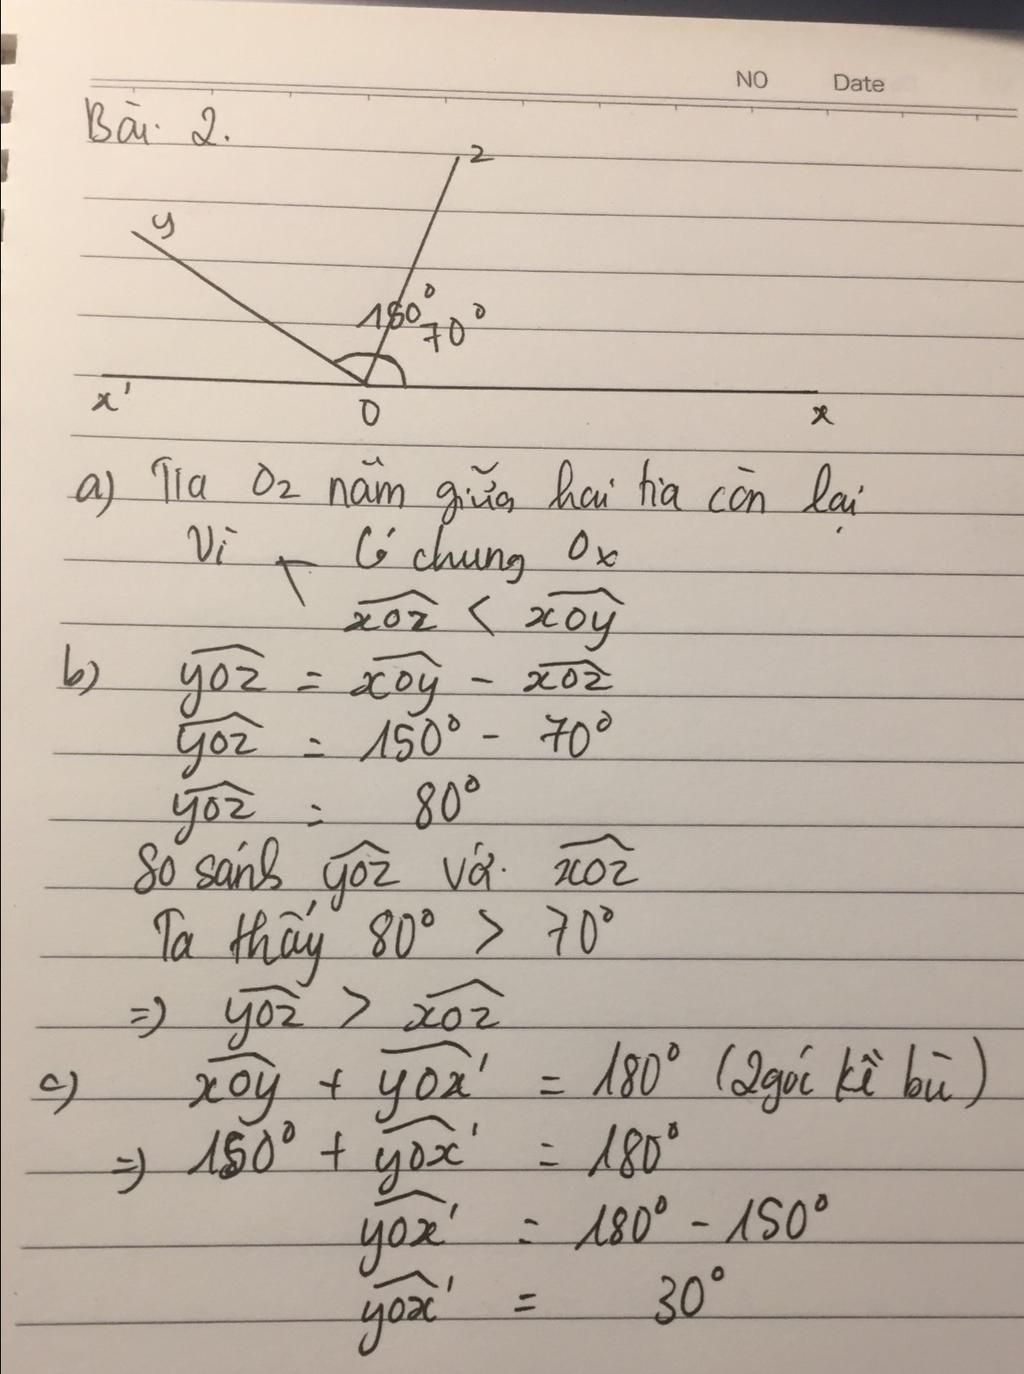 NO Date
Bài 2.
z
y
150° 70°
x' O x
a) Tia Oz nằm giữa hai tia còn lại
Vì Có chung Ox
xOz < xOy
b) yOz = xOy - xOz
yOz = 150° - 70°
yOz = 80°
So sánh yOz với xOz
Ta thấy 80° > 70°
=> yOz > xOz
c) xOy + yOx' = 180° (2 góc kề bù)
=> 150° + yOx' = 180°
yOx' = 180° - 150°
yOx' = 30°